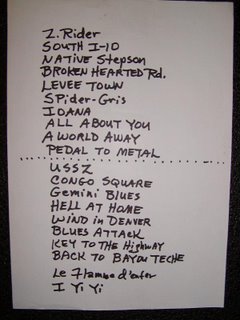 Z. Rider
SOUTH I-10
NATIVE Stepson
BROKEN HEARTED Rd.
LEVEE TOWN
SPider-Gris
IOANA
ALL ABOUT YOU
A WORLD AWAY
PEDAL TO METAL
USSZ
CONGO SQUARE
Gemini BLUES
HELL AT HOME
WIND in DENVER
BLUES ATTACK
KEY TO THE HIGHWAY
BACK TO BAYOU TECHE
Le Flamme d'enfer
I Yi Yi